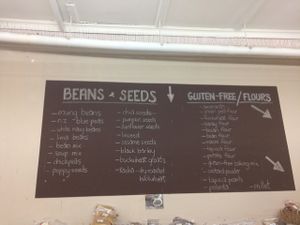 BEANS & SEEDS
- mung beans
- n.z. blue peas
- white navy beans
- lima beans
- bean mix
- soup mix
- chickpeas
- poppy seeds
- chia seeds
- pumpkin seeds
- sunflower seeds
- linseed
- sesame seeds
- black barley
- buckwheat groats
- Kasha - toasted buckwheat
GLUTEN-FREE/FLOURS
- buckwheat flour
- flour
- flour
- flour
- flour
- tapioca flour
- potato flour
- gluten-free baking mix
- custard powder
- tapioca pearls
- polenta
- millet